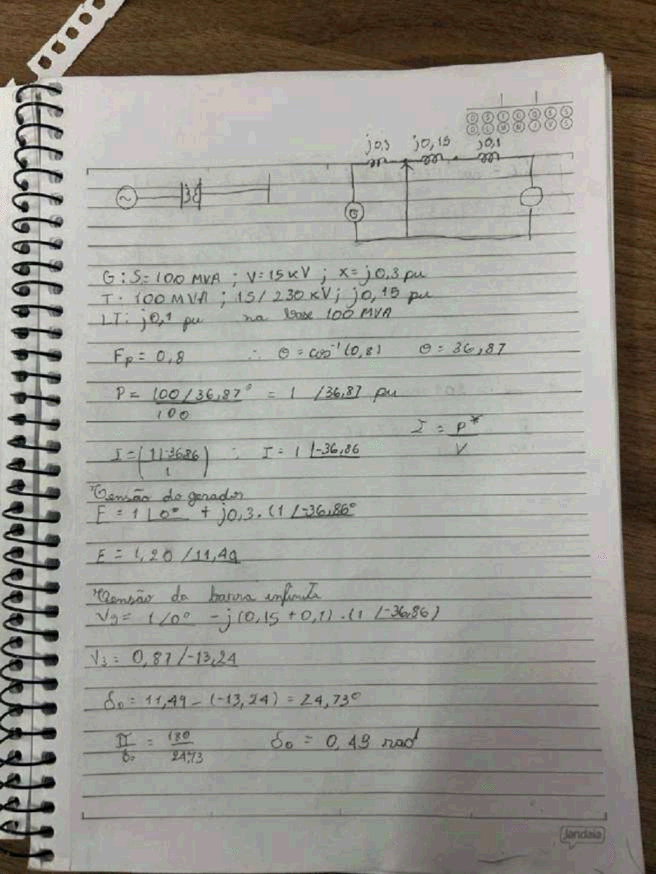 D S T Q Q S S
D L M M J V S
j0,3 j0,15 j0,1
G
G: S= 100 MVA ; V= 15 KV ; X= j0,3 pu
T: 100 MVA ; 15/ 230 KV; j0,15 pu
LT: j0,1 pu na base 100 MVA
Fp = 0,8 ∴ θ = cos⁻¹(0,8) θ = 36,87
P = 100 /36,87° / 100 = 1 /36,87 pu
I = P* / V
I = (1 |-36,86 / 1) ∴ I = 1 |-36,86
Tensão do gerador
E = 1 |0° + j0,3 . (1 /-36,86°
E = 1,20 /11,49
Tensão da barra infinita
= 1/0° - j(0,15 + 0,1) . (1 /-36,86)
= 0,87 /-13,24
δ₀ = 11,49 - (-13,24) = 24,73°
π / δ₀ = 180 / 24,73 δ₀ = 0,43 rad
jandaia